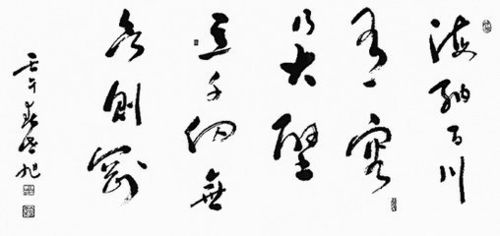 海納百川
有容
乃大壁
立千仞無
欲則剛
午春